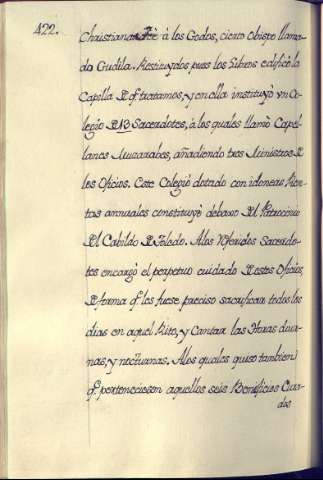 422.
Christiana Fè à los Godos, cierto Obispo llama-
do Gudila. Restituydos pues los Libros edificò la
Capilla de q.e tratamos, y en ella instituyò vn Co-
legio de 13 Sacerdotes, à los quales llamò Capel-
lanes Muzarabes, añadiendo tres Ministros de
los Oficios. Este Colegio dotado con idoneas Ren-
tas annuales constituyò debaxo del Patrocinio
del Cabildo de Toledo. A los Referidos Sacerdo-
tes encargò el perpetuo cuidado de estos Oficios,
de forma q.e les fuese preciso sacrificar todos los
dias en aquel Rito, y Cantar las Horas diur-
nas, y nocturnas. A los quales quiso tambien
q.e perteneciesen aquellos seis Beneficios Cura-
dos